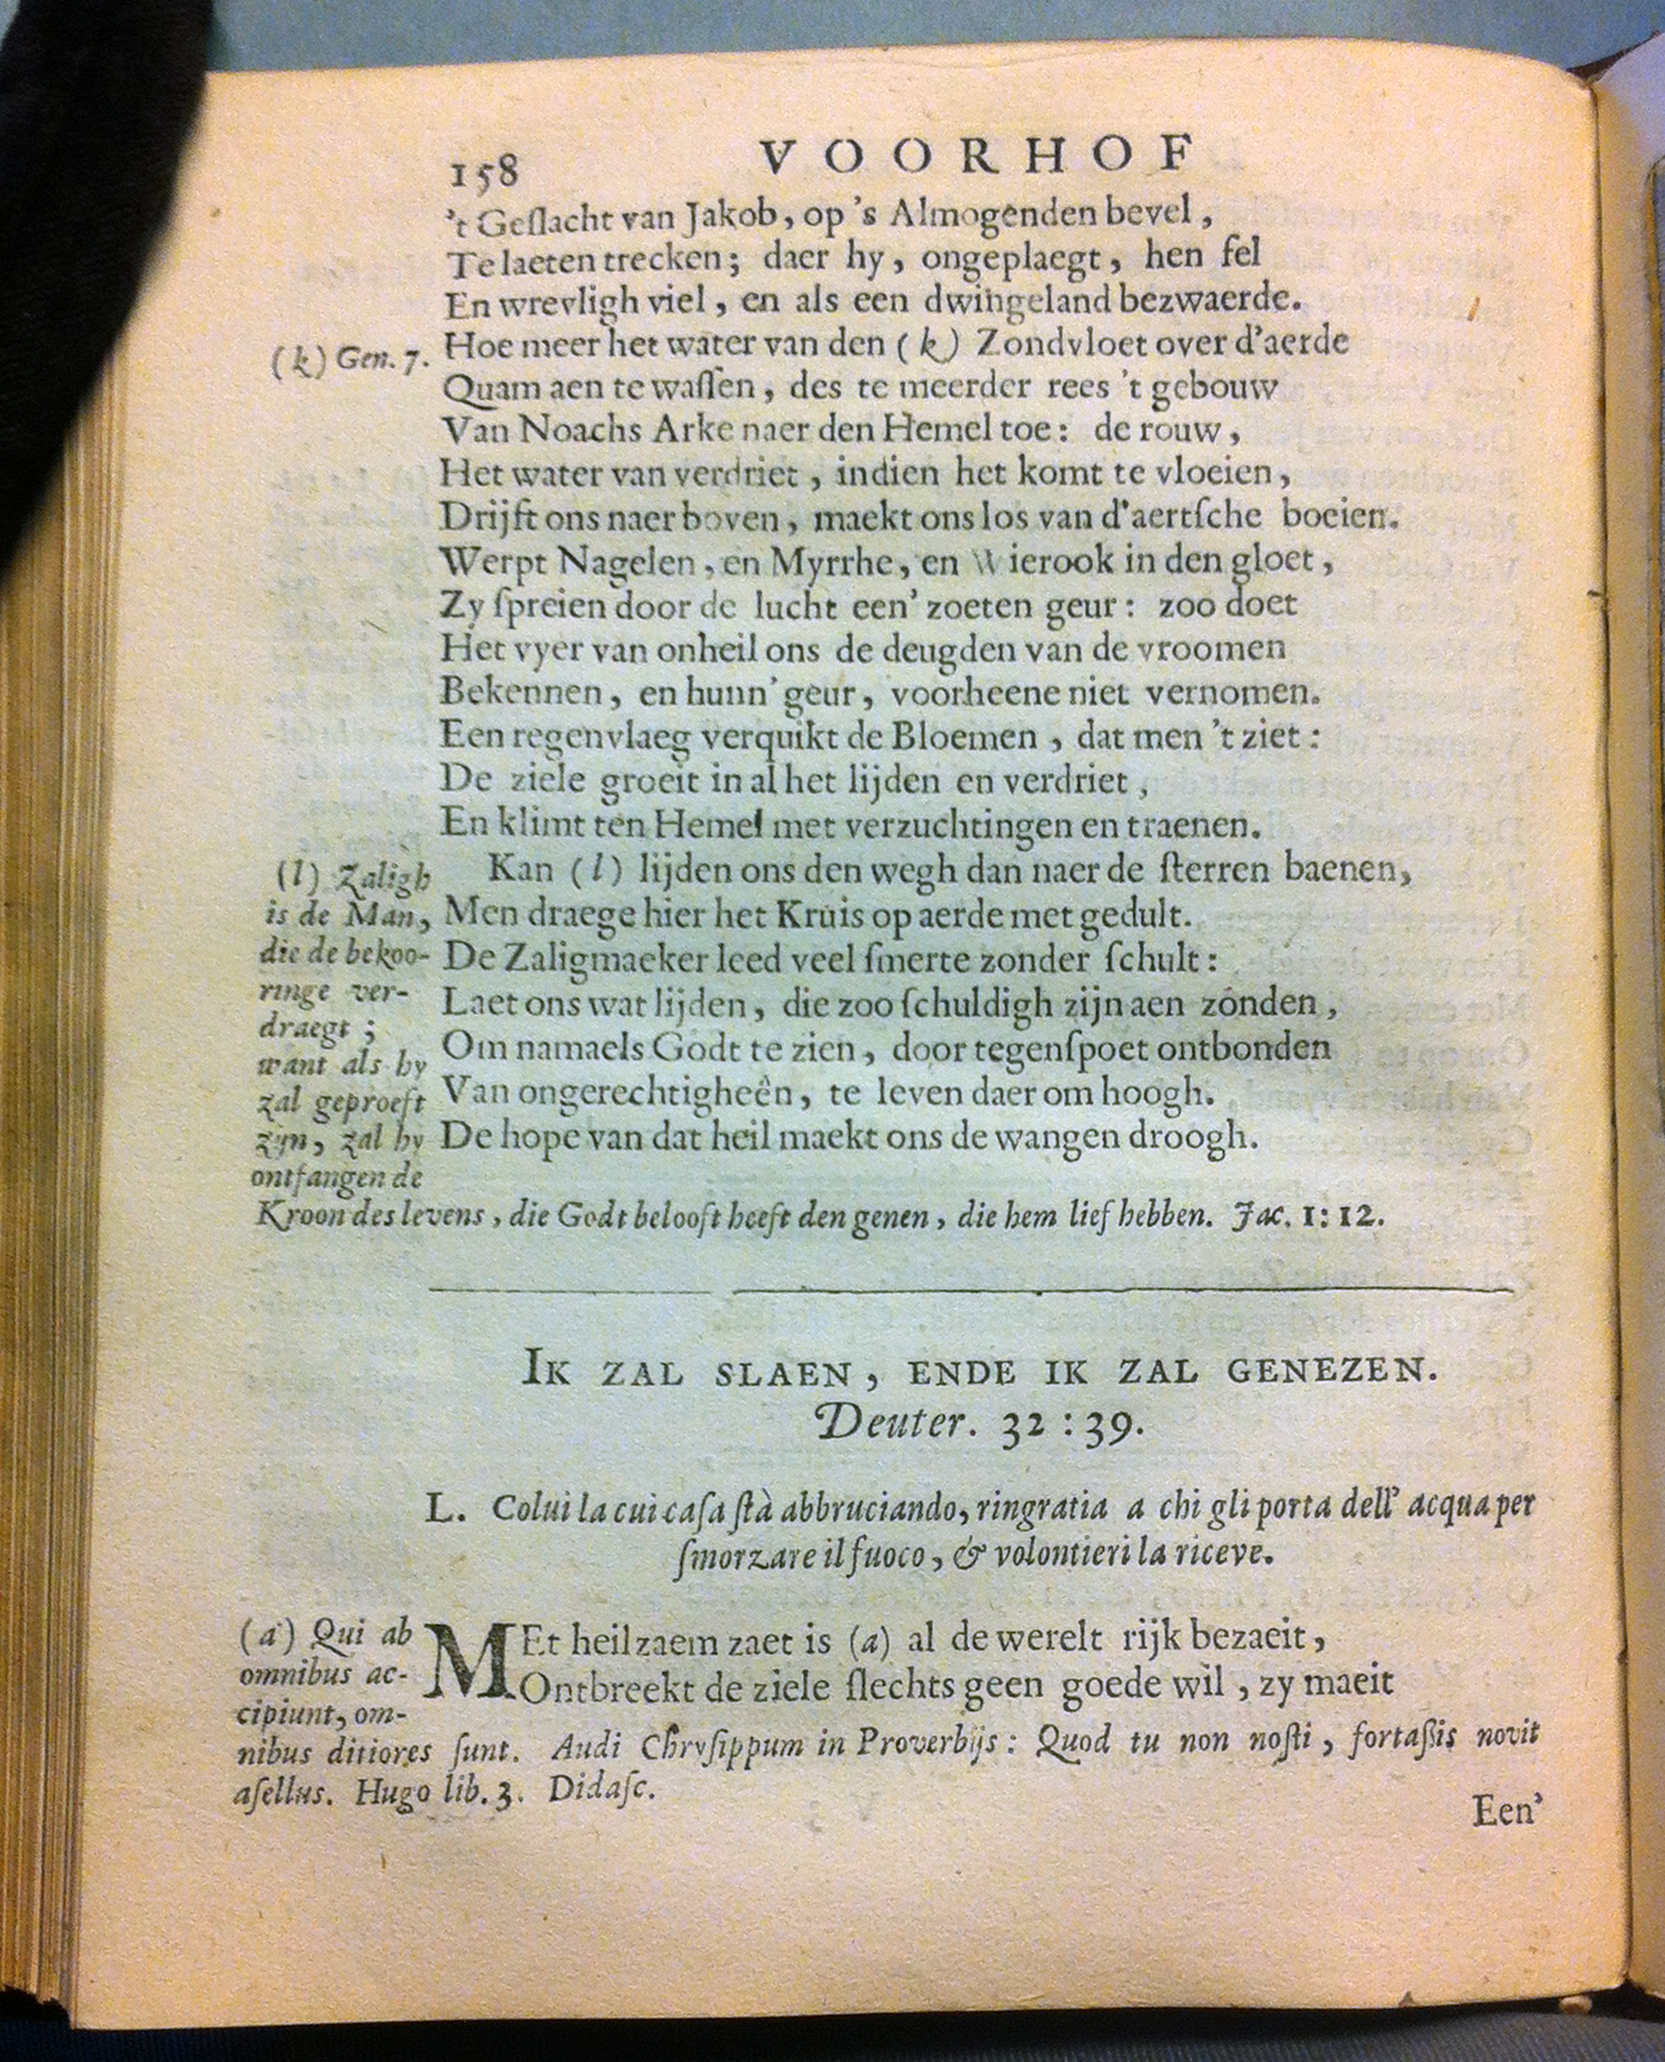 158 VOORHOF
't Geſlacht van Jakob, op 's Almogenden bevel,
Te laeten trecken; daer hy, ongeplaegt, hen fel
En wrevligh viel, en als een dwingeland bezwaerde.
(k) Gen. 7. Hoe meer het water van den (k) Zondvloet over d'aerde
Quam aen te waſſen, des te meerder rees 't gebouw
Van Noachs Arke naer den Hemel toe: de rouw,
Het water van verdriet, indien het komt te vloeien,
Drijft ons naer boven, maekt ons los van d'aertſche boeien.
Werpt Nagelen, en Myrrhe, en Wierook in den gloet,
Zy ſpreien door de lucht een' zoeten geur: zoo doet
Het vyer van onheil ons de deugden van de vroomen
Bekennen, en hunn' geur, voorheene niet vernomen.
Een regenvlaeg verquikt de Bloemen, dat men 't ziet:
De ziele groeit in al het lijden en verdriet,
En klimt ten Hemel met verzuchtingen en traenen.
Kan (l) lijden ons den wegh dan naer de ſterren baenen,
Men draege hier het Kruis op aerde met gedult.
De Zaligmaeker leed veel ſmerte zonder ſchult:
Laet ons wat lijden, die zoo ſchuldigh zijn aen zonden,
Om namaels Godt te zien, door tegenſpoet ontbonden
Van ongerechtigheên, te leven daer om hoogh.
De hope van dat heil maekt ons de wangen droogh.
(l) Zaligh
is de Man,
die de bekoo-
ringe ver-
draegt;
want als hy
zal geproeft
zijn, zal hy
ontfangen de
Kroon des levens, die Godt belooft heeft den genen, die hem lief hebben. Jac. 1: 12.
IK ZAL SLAEN, ENDE IK ZAL GENEZEN.
Deuter. 32 : 39.
L. Colui la cui caſa ſtà abbruciando, ringratia a chi gli porta dell' acqua per
ſmorzare il fuoco, & volontieri la riceve.
MEt heilzaem zaet is (a) al de werelt rijk bezaeit,
Ontbreekt de ziele ſlechts geen goede wil, zy maeit
(a) Qui ab
omnibus ac-
cipiunt, om-
nibus ditiores ſunt. Audi Chryſippum in Proverbijs: Quod tu non noſti, fortaßis novit
aſellus. Hugo lib. 3. Didaſc.
Een'